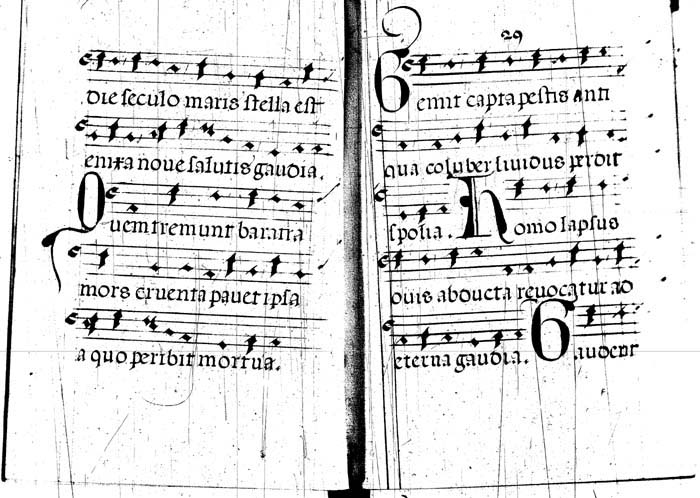 die seculo maris stella est
enixa nove salutis gaudia.
Quem tremunt baratra
mors cruenta pavet ipsa
a quo peribit mortua.
29
Gemit capta pestis anti
qua coluber lividus perdit
spolia. Homo lapsus
ovis abducta revocatur ad
eterna gaudia. Gaudent